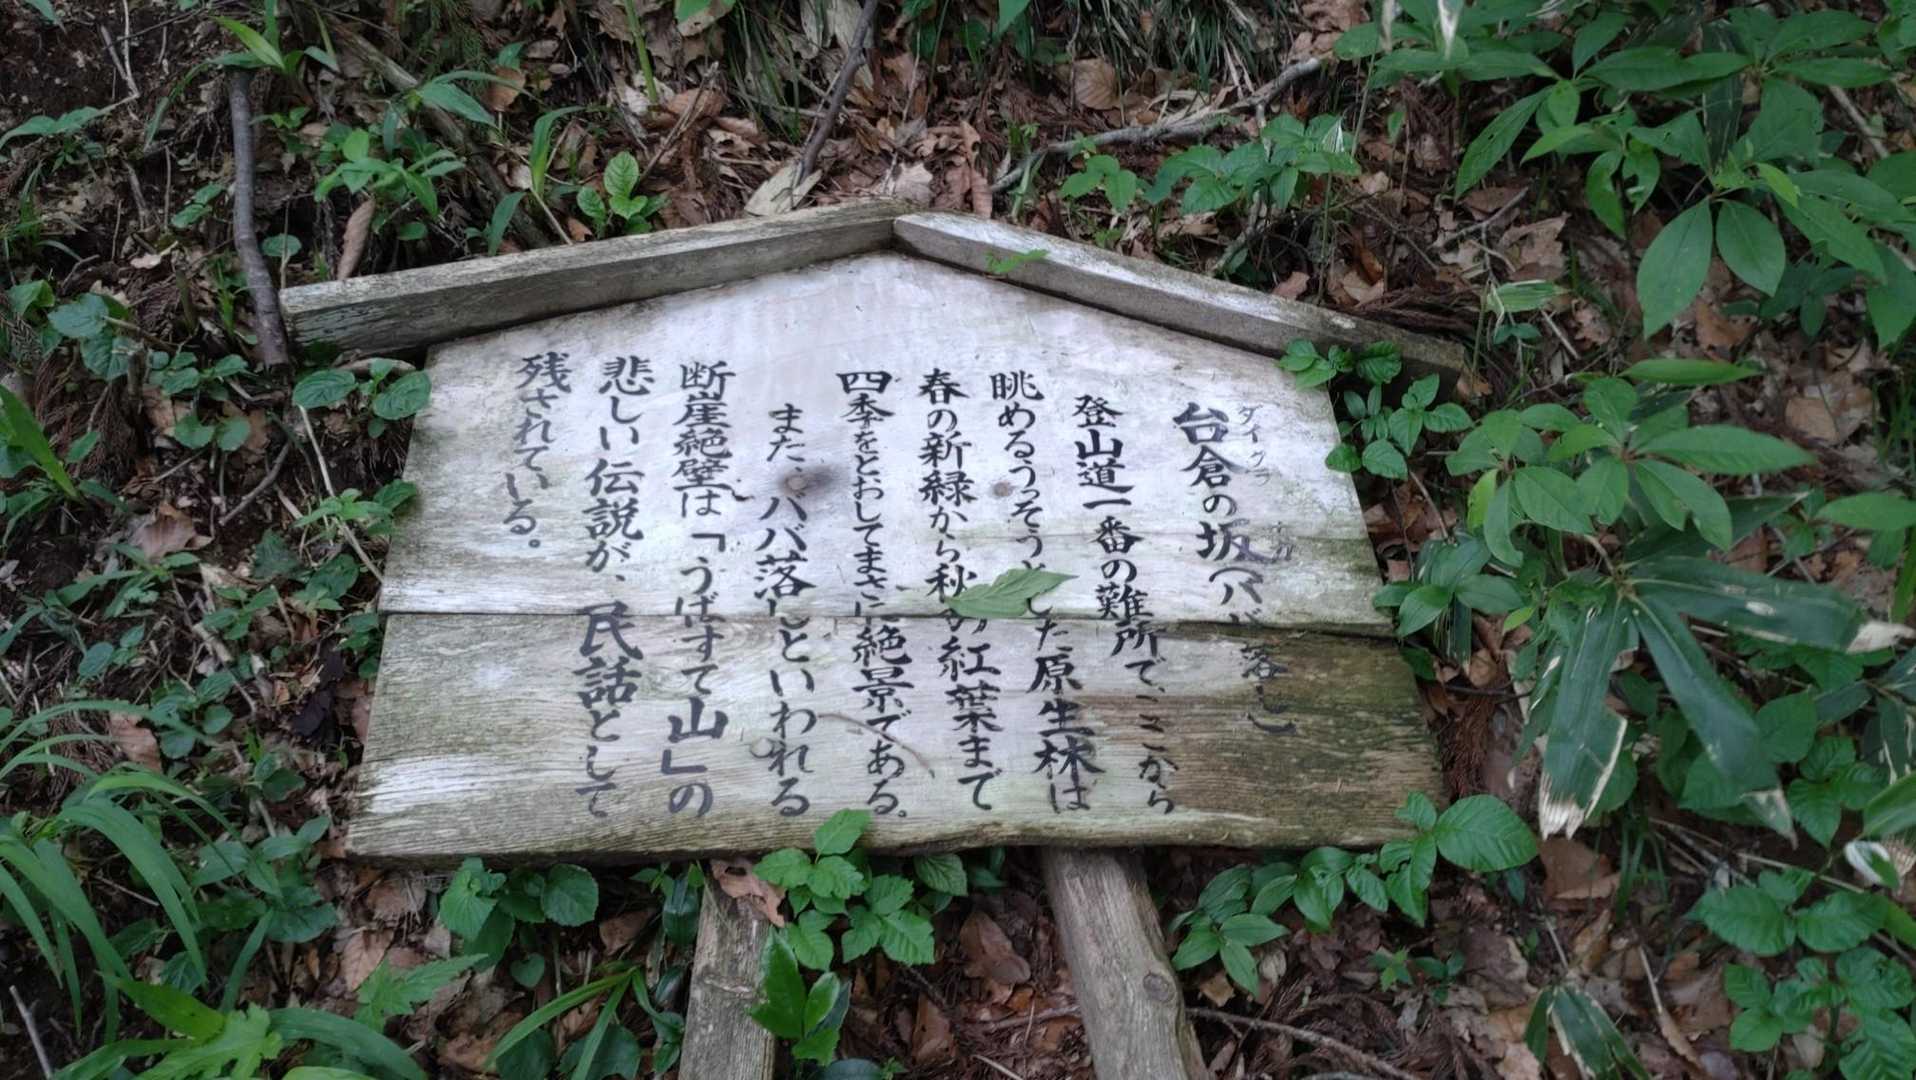 台倉の坂(ババ落し)
ダイグラ
サカ
登山道一番の難所で、ここから
眺めるうっそうとした原生林は
春の新緑から秋の紅葉まで
四季をとおしてまさに絶景である。
また、ババ落しといわれる
断崖絶壁は「うばすて山」の
悲しい伝説が、民話として
残されている。